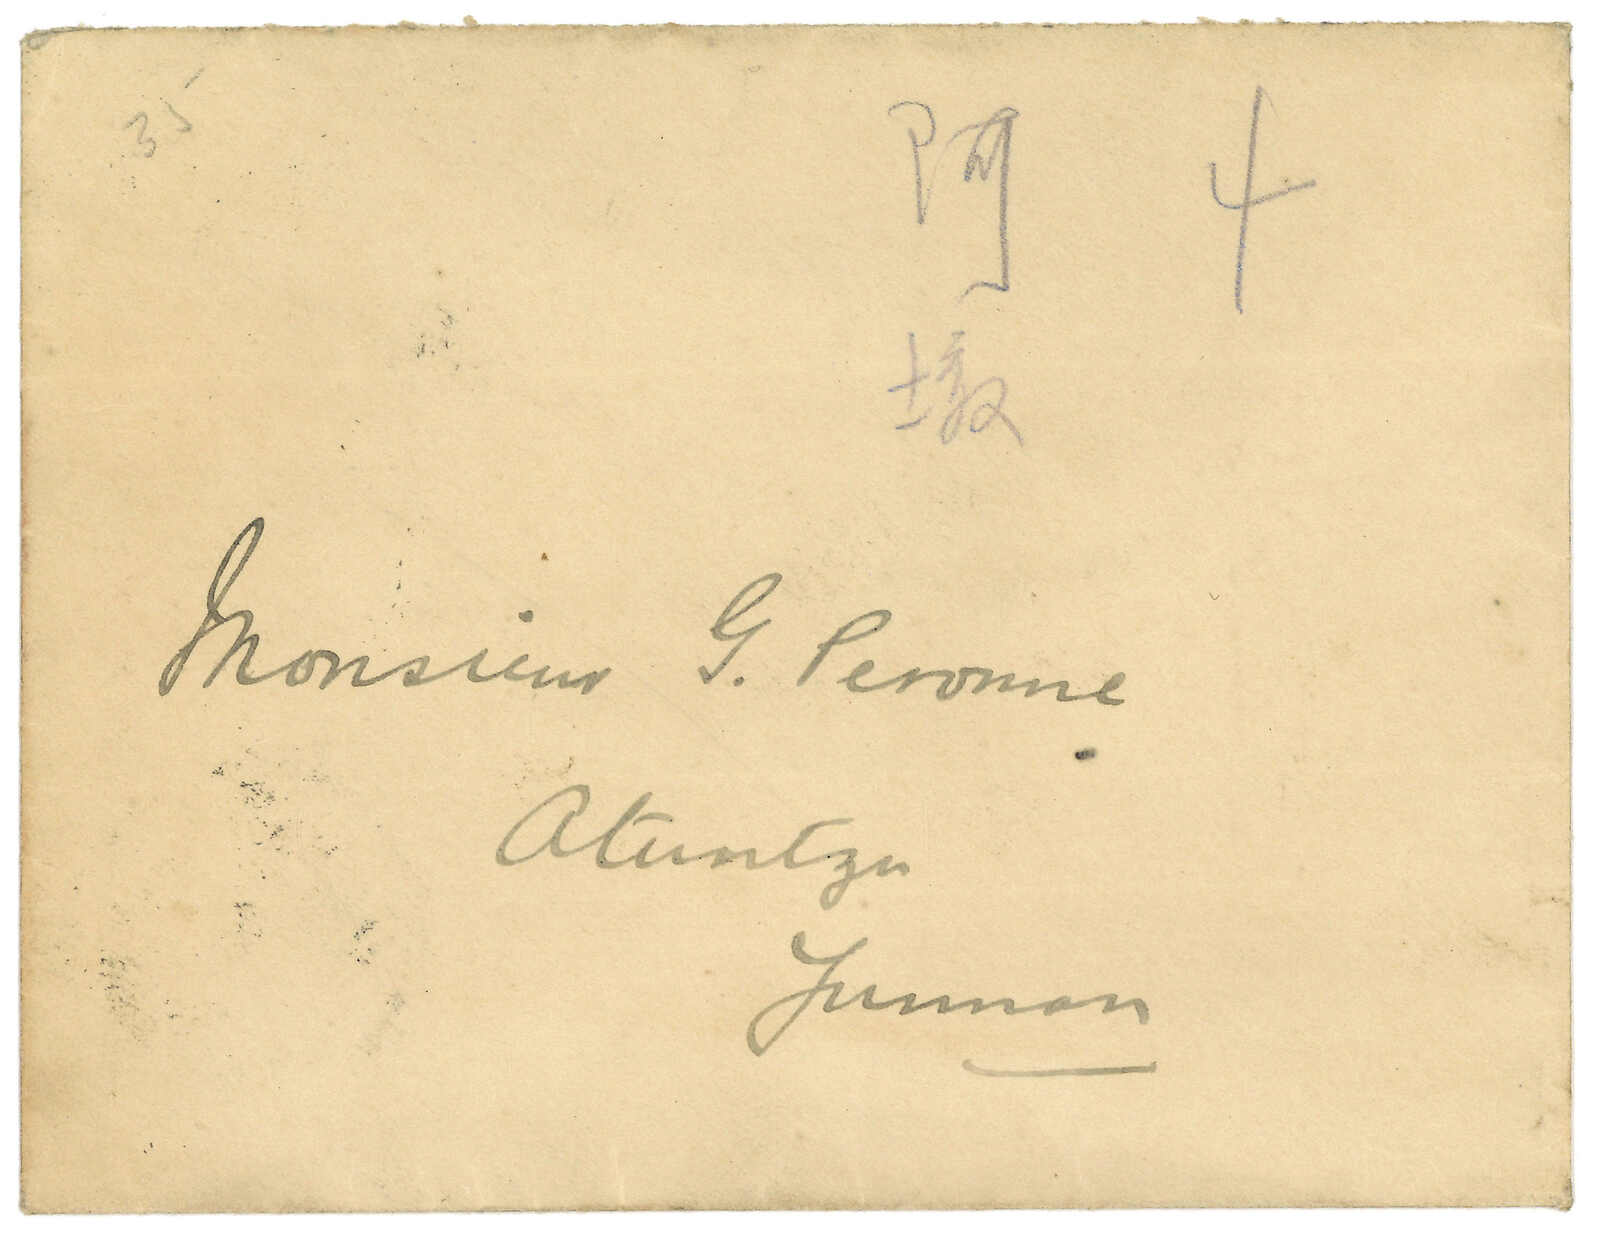 35
阿 4
墩
Monsieur G. Peronne
Atuntzu
Yunnan